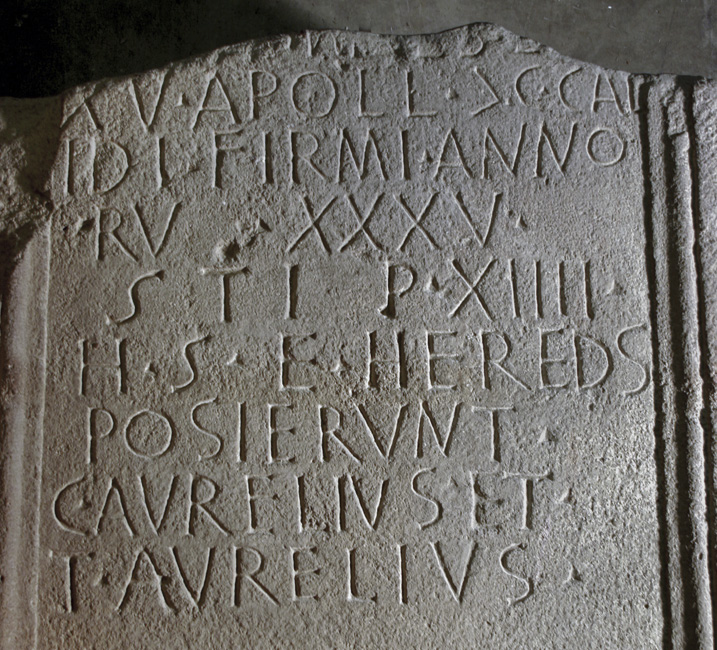 XV·APOLL·>·C·CAL
IDI·FIRMI·ANNO
RV · XXXV·
STI P·XIIII·
H·S·E·HEREDS
POSIERVNT·
C·AVRELIVS·ET·
T·AVRELIVS·